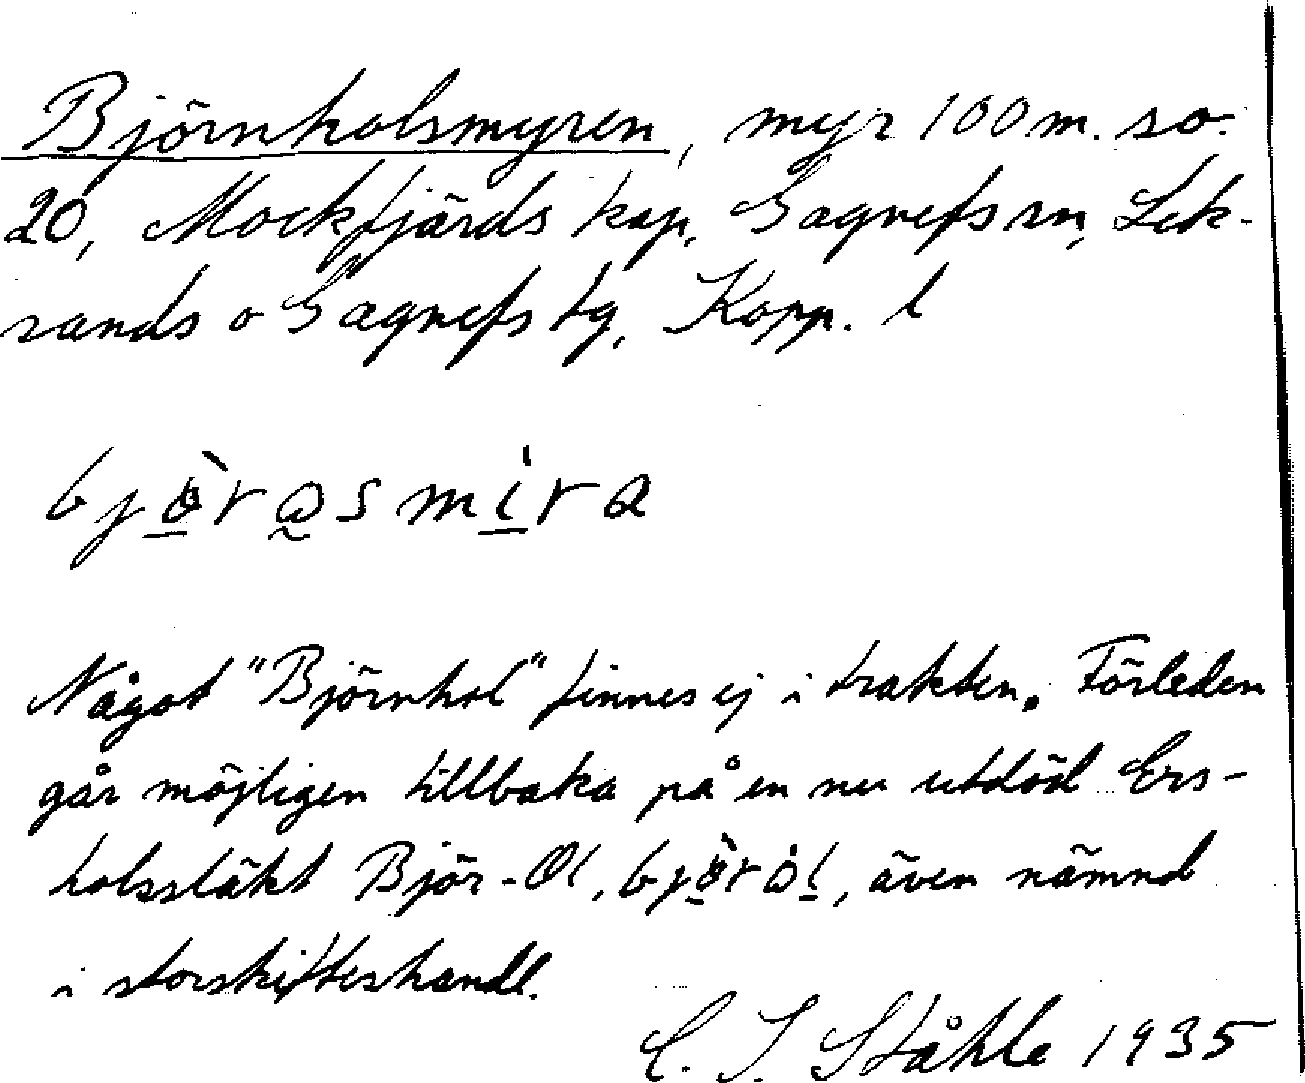 Björnholsmyren, myr 100 m. so.
20, Mockfjärds kap, Gagnefs sn, Lek-
sands o Gagnefs tg, Kopp. l
Något "Björnhol" finnes ej i trakten. Förleden
går möjligen tillbaka på en nu utdöd Ers-
holssläkt Björ-Ol, även nämnd
i storskifteshandl.
C. I. Ståhle 1935